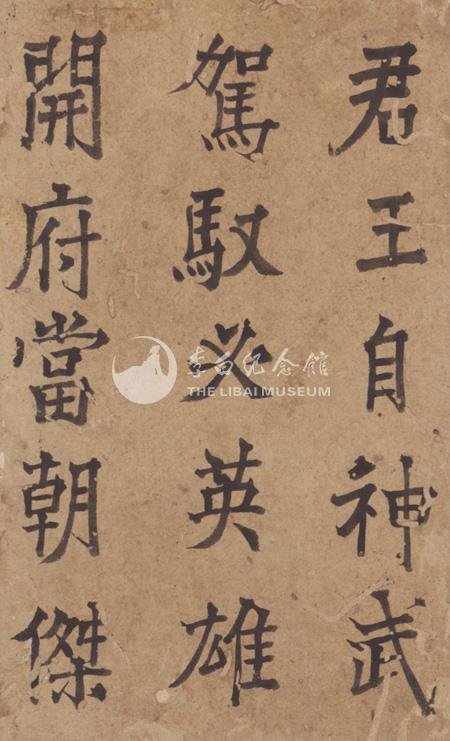 君王自神武
駕馭必英雄
開府當朝傑
李白纪念馆
THE LIBAI MUSEUM